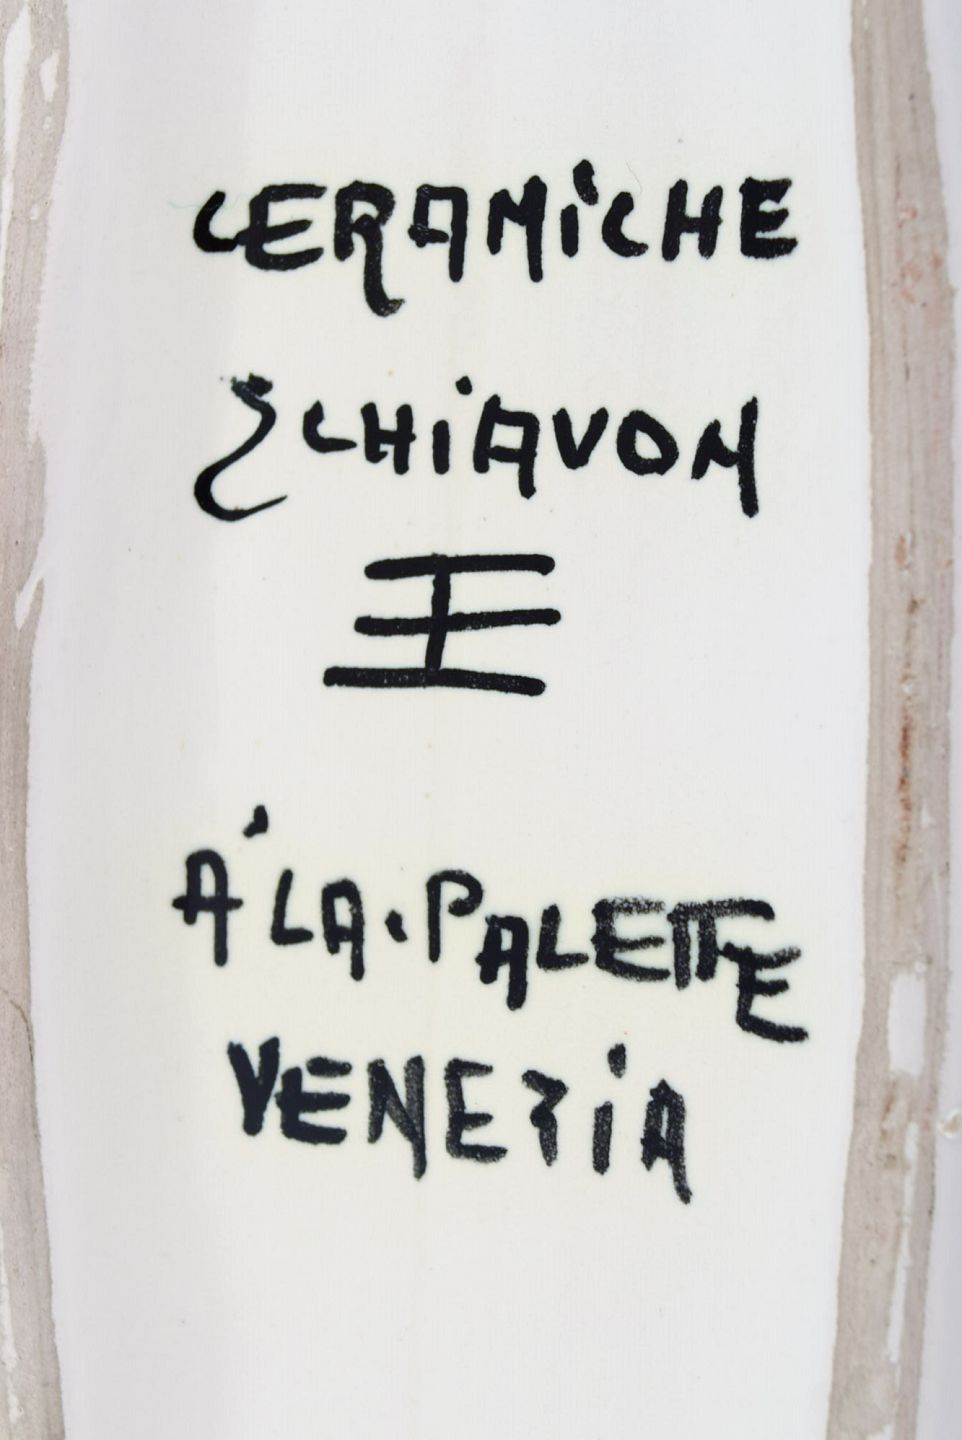 CERAMiCHE
SCHiAVON
A'LA.PALETTE
VENEZiA